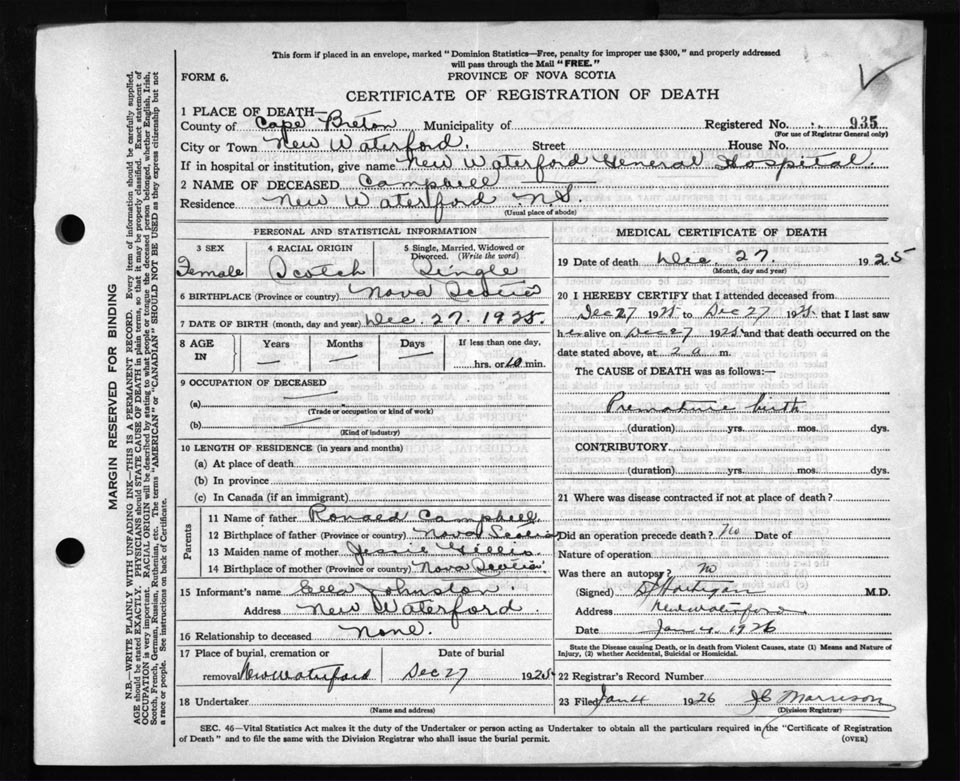 This form if placed in an envelope, marked "Dominion Statistics—Free, penalty for improper use $300," and properly addressed
will pass through the Mail "FREE."
FORM 6.
PROVINCE OF NOVA SCOTIA
CERTIFICATE OF REGISTRATION OF DEATH
1 PLACE OF DEATH—
County of Cape Breton Municipality of Registered No. 935
(For use of Registrar General only)
City or Town New Waterford. Street House No.
If in hospital or institution, give name New Waterford General Hospital.
2 NAME OF DECEASED Campbell
Residence New Waterford N.S.
(Usual place of abode)
PERSONAL AND STATISTICAL INFORMATION
3 SEX 4 RACIAL ORIGIN 5 Single, Married, Widowed or
Divorced. (Write the word)
Female Scotch Single
6 BIRTHPLACE (Province or country) Nova Scotia
7 DATE OF BIRTH (month, day and year) Dec. 27. 1925.
8 AGE IN Years Months Days If less than one day,
— — — hrs. or 10 min.
9 OCCUPATION OF DECEASED
(a)
(Trade or occupation or kind of work)
(b)
(Kind of industry)
10 LENGTH OF RESIDENCE (in years and months)
(a) At place of death
(b) In province
(c) In Canada (if an immigrant)
Parents
11 Name of father Ronald Campbell.
12 Birthplace of father (Province or country) Nova Scotia
13 Maiden name of mother Jessie Gillis.
14 Birthplace of mother (Province or country) Nova Scotia.
15 Informant's name Ella Johnston
Address New Waterford.
16 Relationship to deceased None.
17 Place of burial, cremation or Date of burial
removal New Waterford Dec 27 1925.
18 Undertaker
(Name and address)
MEDICAL CERTIFICATE OF DEATH
19 Date of death Dec. 27. 1925
(Month, day and year)
20 I HEREBY CERTIFY that I attended deceased from
Dec 27 1925 to Dec 27 1925. that I last saw
her alive on Dec 27 1925 and that death occurred on the
date stated above, at 2 a m.
The CAUSE of DEATH was as follows:—
Premature birth
(duration) yrs. mos. dys.
CONTRIBUTORY.
(duration) yrs. mos. dys.
21 Where was disease contracted if not at place of death?
Did an operation precede death? No Date of
Nature of operation
Was there an autopsy? No
(Signed) Hartigan M.D.
Address New Waterford
Date Jan 4. 1926
State the Disease causing Death, or in death from Violent Causes, state (1) Means and Nature of
Injury, (2) whether Accidental, Suicidal or Homicidal.
22 Registrar's Record Number
23 Filed Jan 4 1926 Morrison
(Division Registrar)
SEC. 46—Vital Statistics Act makes it the duty of the Undertaker or person acting as Undertaker to obtain all the particulars required in the "Certificate of Registration
of Death" and to file the same with the Division Registrar who shall issue the burial permit.
(OVER)
MARGIN RESERVED FOR BINDING
N.B.—WRITE PLAINLY WITH UNFADING INK—THIS IS A PERMANENT RECORD. Every item of information should be carefully supplied.
AGE should be stated EXACTLY. PHYSICIANS should STATE CAUSE OF DEATH in plain terms, so that it may be properly classified. Exact statement of
OCCUPATION is very important. RACIAL ORIGIN will be described by stating to what people or tongue the deceased person belonged, whether English, Irish,
Scotch, French, German, Russian, Ruthenian, etc. The terms "AMERICAN" or "CANADIAN" SHOULD NOT BE USED as they express citizenship but not
a race or people. See instructions on back of Certificate.